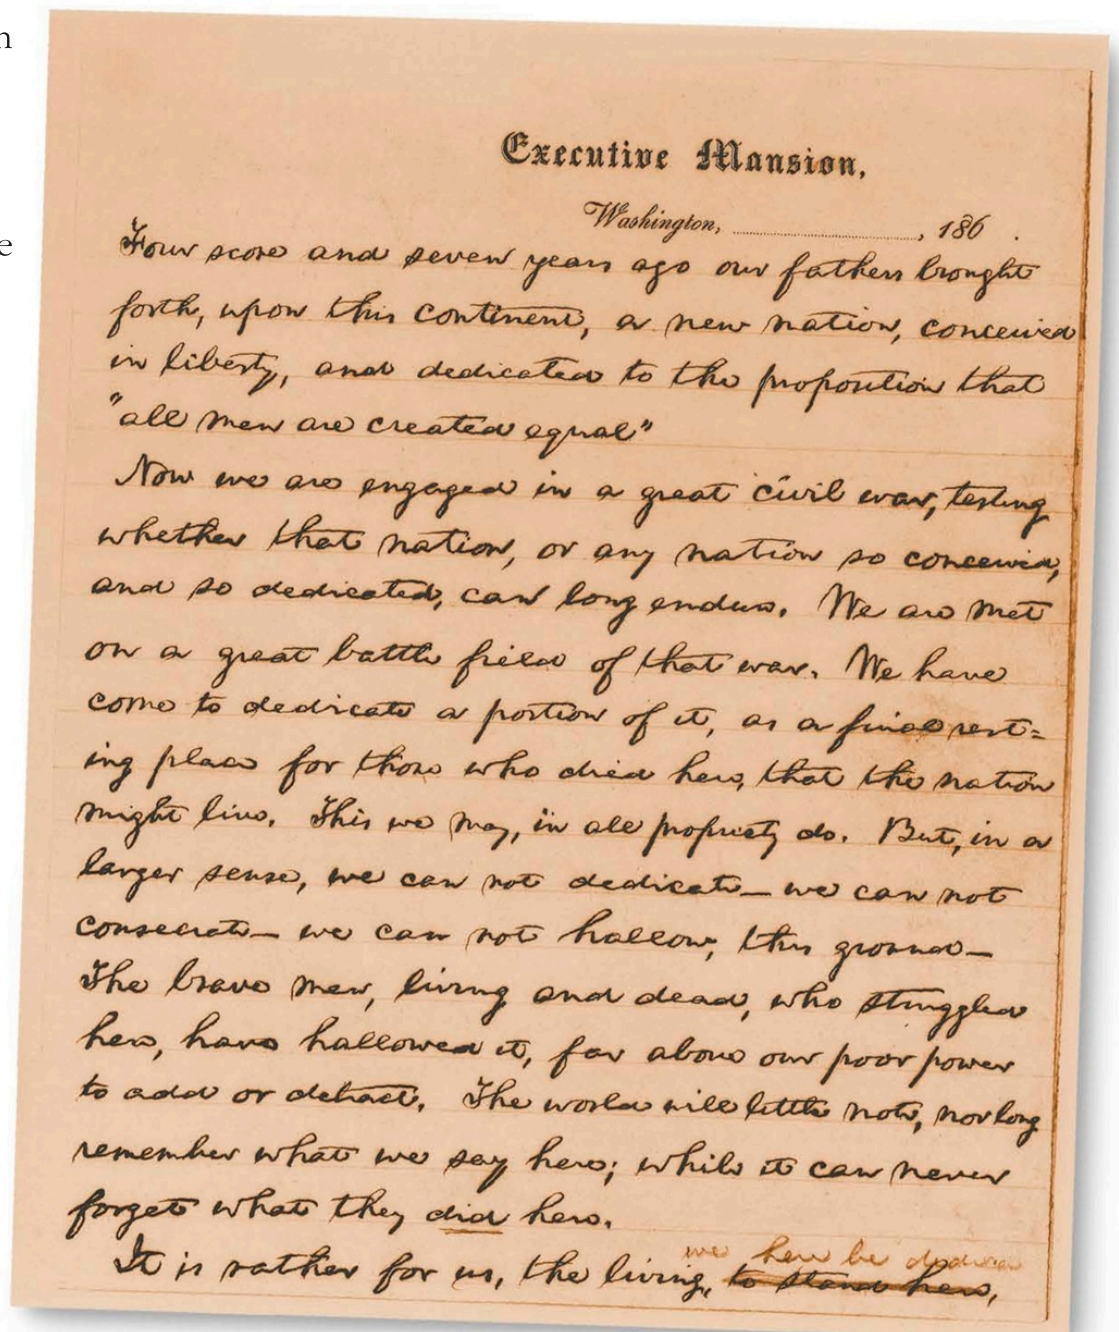 n
e
Executive Mansion,
Washington, ..............................., 186 .
Four score and seven years ago our fathers brought
forth, upon this continent, a new nation, conceived
in liberty, and dedicated to the proposition that
"all men are created equal"
Now we are engaged in a great civil war, testing
whether that nation, or any nation so conceived,
and so dedicated, can long endure. We are met
on a great battle field of that war. We have
come to dedicate a portion of it, as a final rest=
ing place for those who died here, that the nation
might live. This we may, in all propriety do. But, in a
larger sense, we can not dedicate— we can not
consecrate— we can not hallow, this ground—
The brave men, living and dead, who struggled
here, have hallowed it, far above our poor power
to add or detract. The world will little note, nor long
remember what we say here; while it can never
forget what they did here.
we here be dedica
It is rather for us, the living, to stand here,